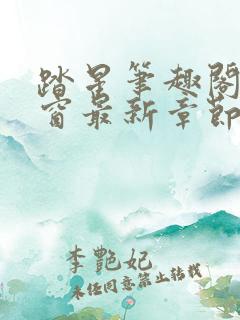 踏星筆趣閣
窗最新章節
李艷妃
未经同意禁止转载